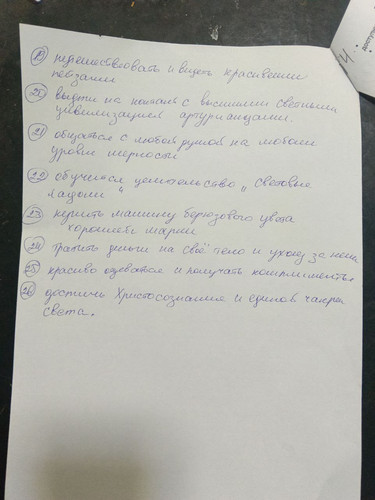 19 путешествовать и видеть красивейшие
пейзажи
20 выйти на контакт с высшими светлыми
цивилизациями арктурианцами.
21 общаться с любой душой на любом
уровне мерности
22 обучится целительство "световые
ладони"
23 купить машину бирюзового цвета
хорошей марки
24 тратить деньги на своё тело и уход за ним
25 красиво одеваться и получать комплименты
26 достичь Христосознания и единой чакры
света.